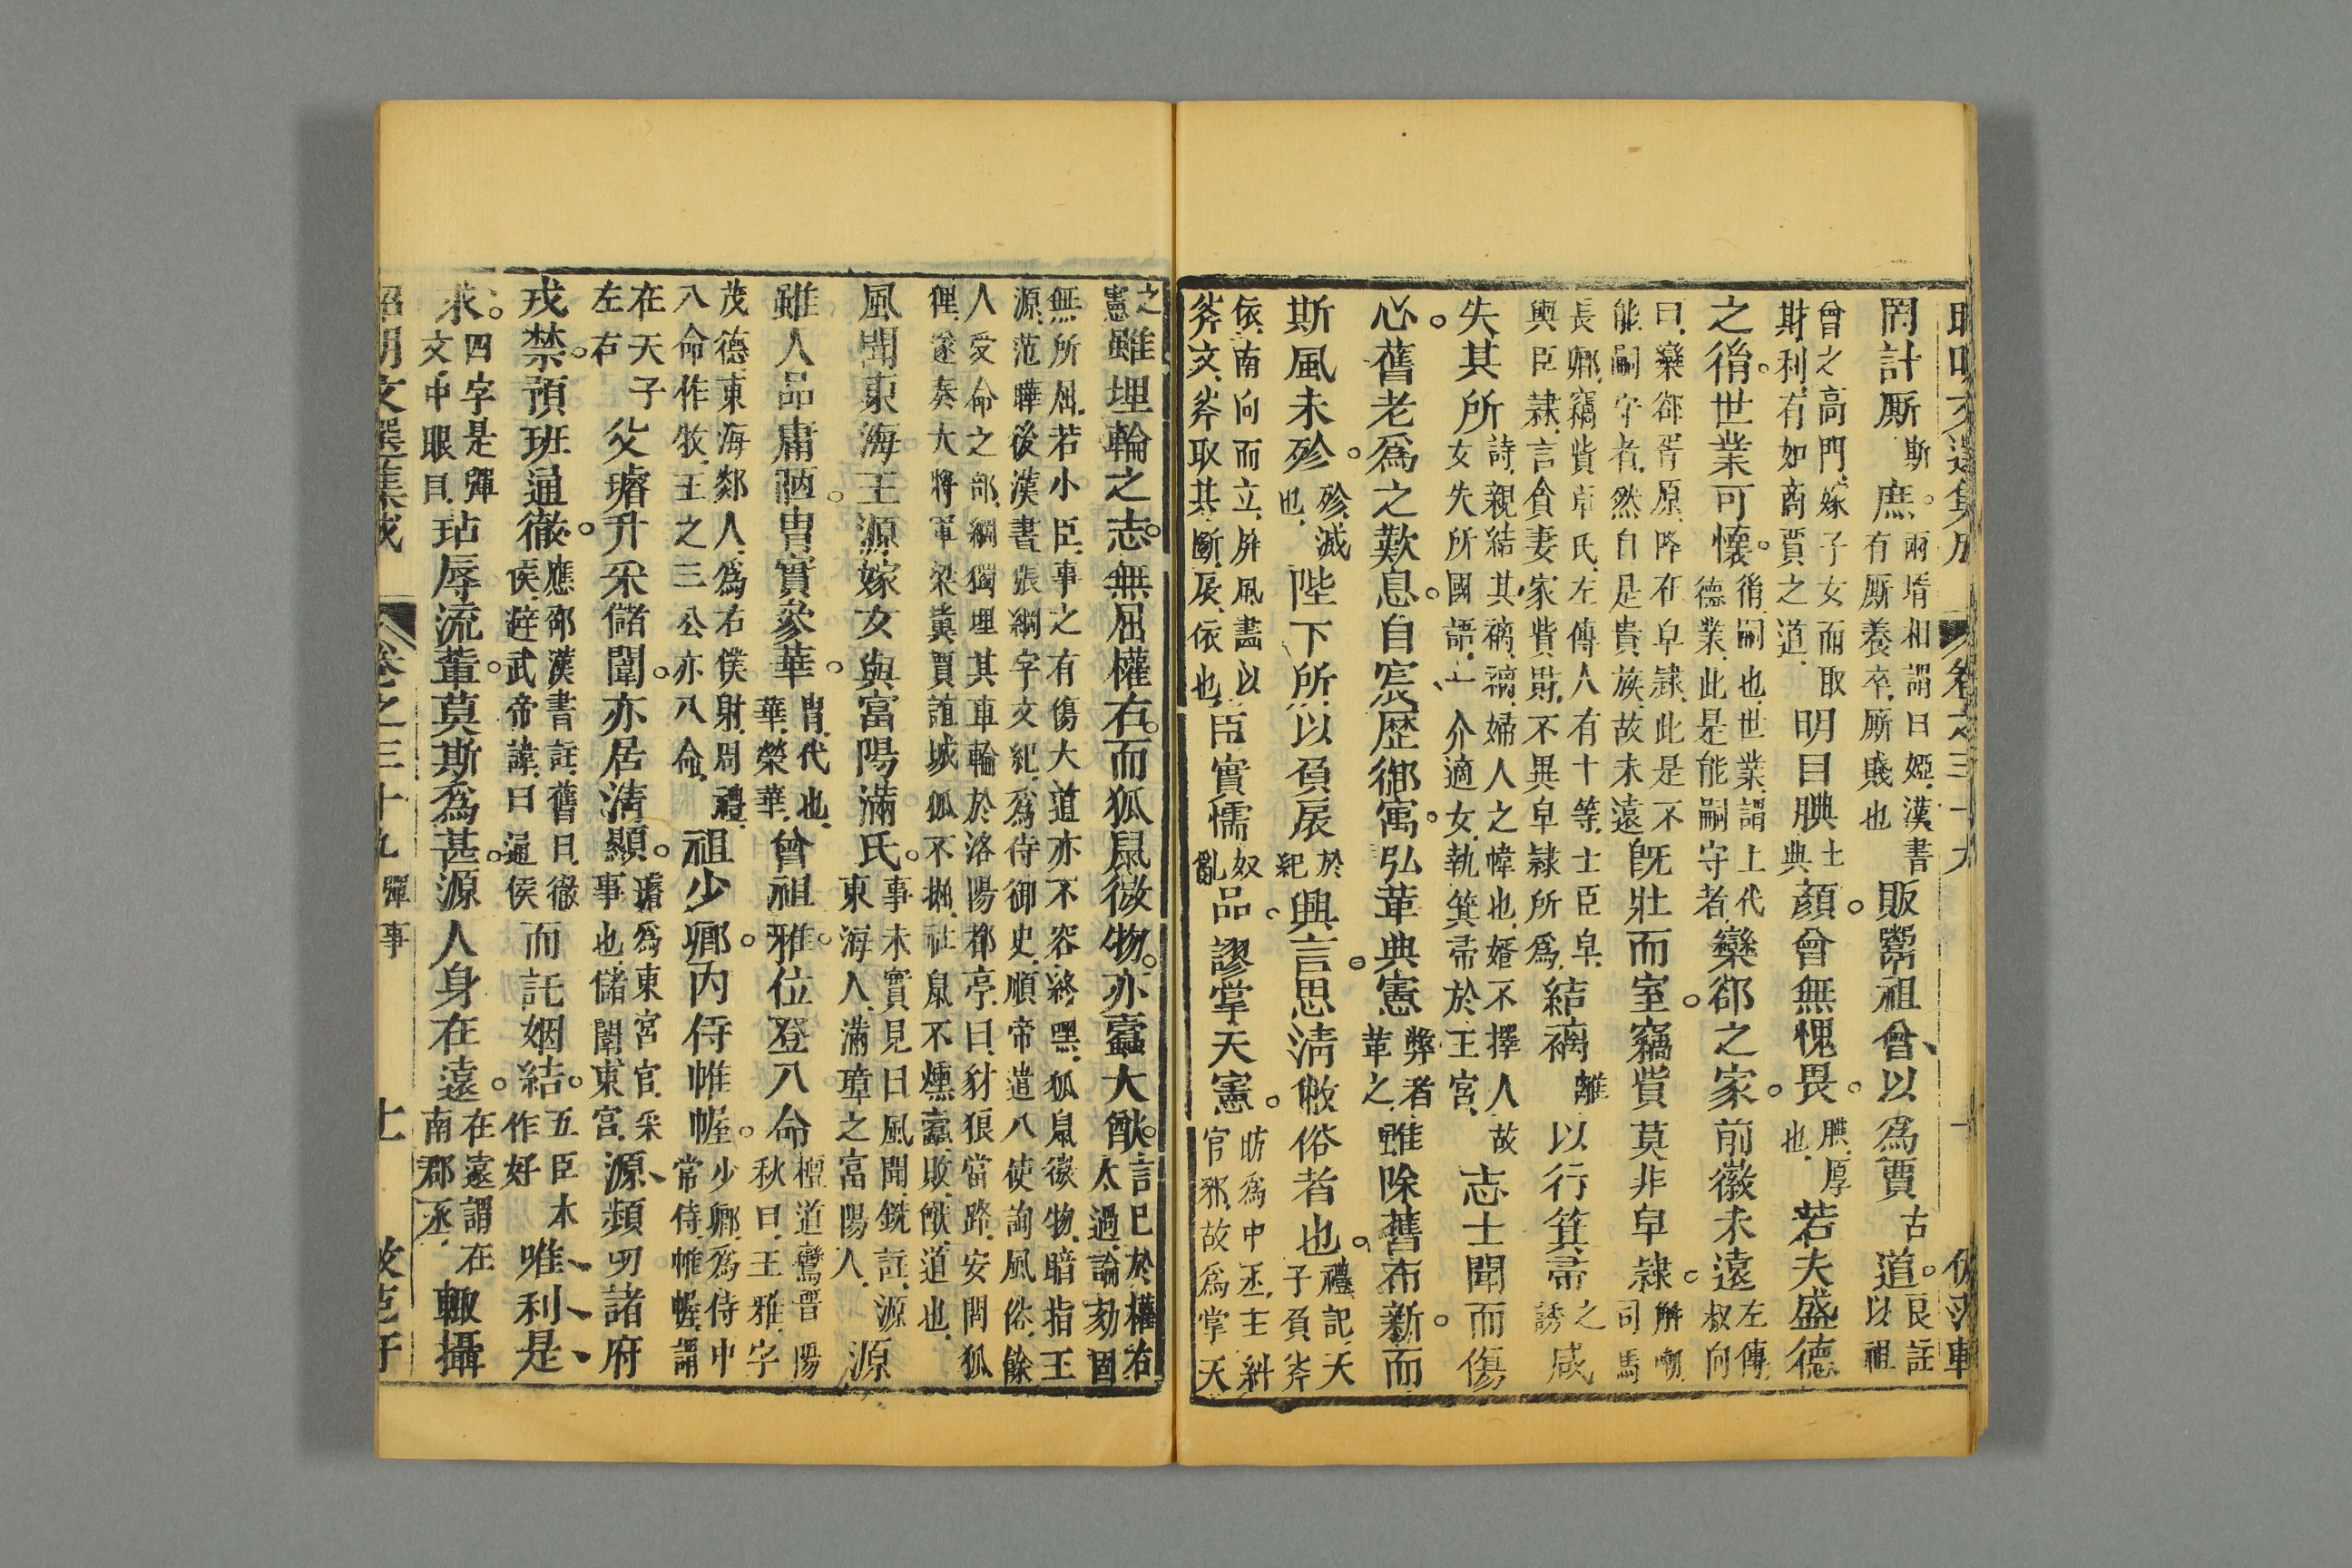 昭明文選集成 卷之三十九 十
罔計厮斯庶。兩壻相謂曰婭、漢書有厮養卒、厮賤也 販鬻祖曾、以爲賈古道。良註以祖
曾之高門、嫁子女而取財利、有如商賈之道、明目腆士典顏。曾無愧畏。腆、厚也、若夫盛德
之後。世業可懷。後、嗣也、世業、謂上代德業、此是能嗣守者、欒郤之家。前徽未遠左傳、叔向
曰、欒郤胥原、降在皁隸、此是不能嗣守者、然自是貴族、故未遠 旣壯而室。竊貲莫非皁隸。解嘲、司馬
長卿、竊貲卓氏、左傳人有十等、士臣皁、輿臣隸、言貪妻家貲財、不異皁隸所爲、結褵離以行箕帚之咸誘
失其所詩、親結其褵、褵、婦人之幃也、婚不擇人、故女失所、國語、一介適女、執箕帚於王宮、志士聞而傷
心。舊老爲之歎息。自宸歷御寓。弘革典憲弊者革之、雖除舊布新。而
斯風未殄。殄、滅也、陛下所以負扆於紀興言。思淸敝俗者也。禮記、天子負斧
依、南向而立、屛風畫以斧文、斧取其斷、扆、依也、臣實儒奴亂品。謬掌天憲。昉爲中丞、主糾官邪、故爲掌天
之憲 雖埋輪之志。無屈權右。而狐鼠微物。亦蠧大猷。言己於權右太過、論劾固
無所屈、若小臣、事之有傷大道亦不容終嘿、狐鼠微物、暗指王源、范曄後漢書、張綱字文紀、爲侍御史、順帝遣八使詢風俗、餘
人受命之部、綱獨埋其車輪於洛陽都亭、曰、豺狼當路、安問狐狸、遂奏大將軍梁冀、賈誼城狐不掘、社鼠不燻、蠧、敗、猷、道也、
風聞東海王源嫁女與富陽滿氏。事未實見曰風聞、銑註、源東海人、滿璋之富陽人、源
雖人品庸陋。冑實參華。冑、代也、華、榮華、曾祖雅。位登八命檀道鸞晉陽秋曰、王雅、字
茂德、東海郯人、爲右僕射、周禮、八命作牧、王之三公亦八命、祖少卿。內侍帷幄。少卿、爲侍中常侍、帷幄、謂
在天子左右 父璿升采儲闈。亦居淸顯。璿爲東宮官、采事也、儲闈東宮、源、頻叨諸府
戎禁。預班通徹。應邵漢書註、舊曰、徹侯、避武帝諱、曰通侯 而託姻結。五臣本作好 唯、利、是、
求。四字是彈文、中眼目、玷辱流輩。莫斯爲甚。源人身在遠。在遠謂在南郡丞、輙攝
昭明文選集成 卷之三十九 彈事